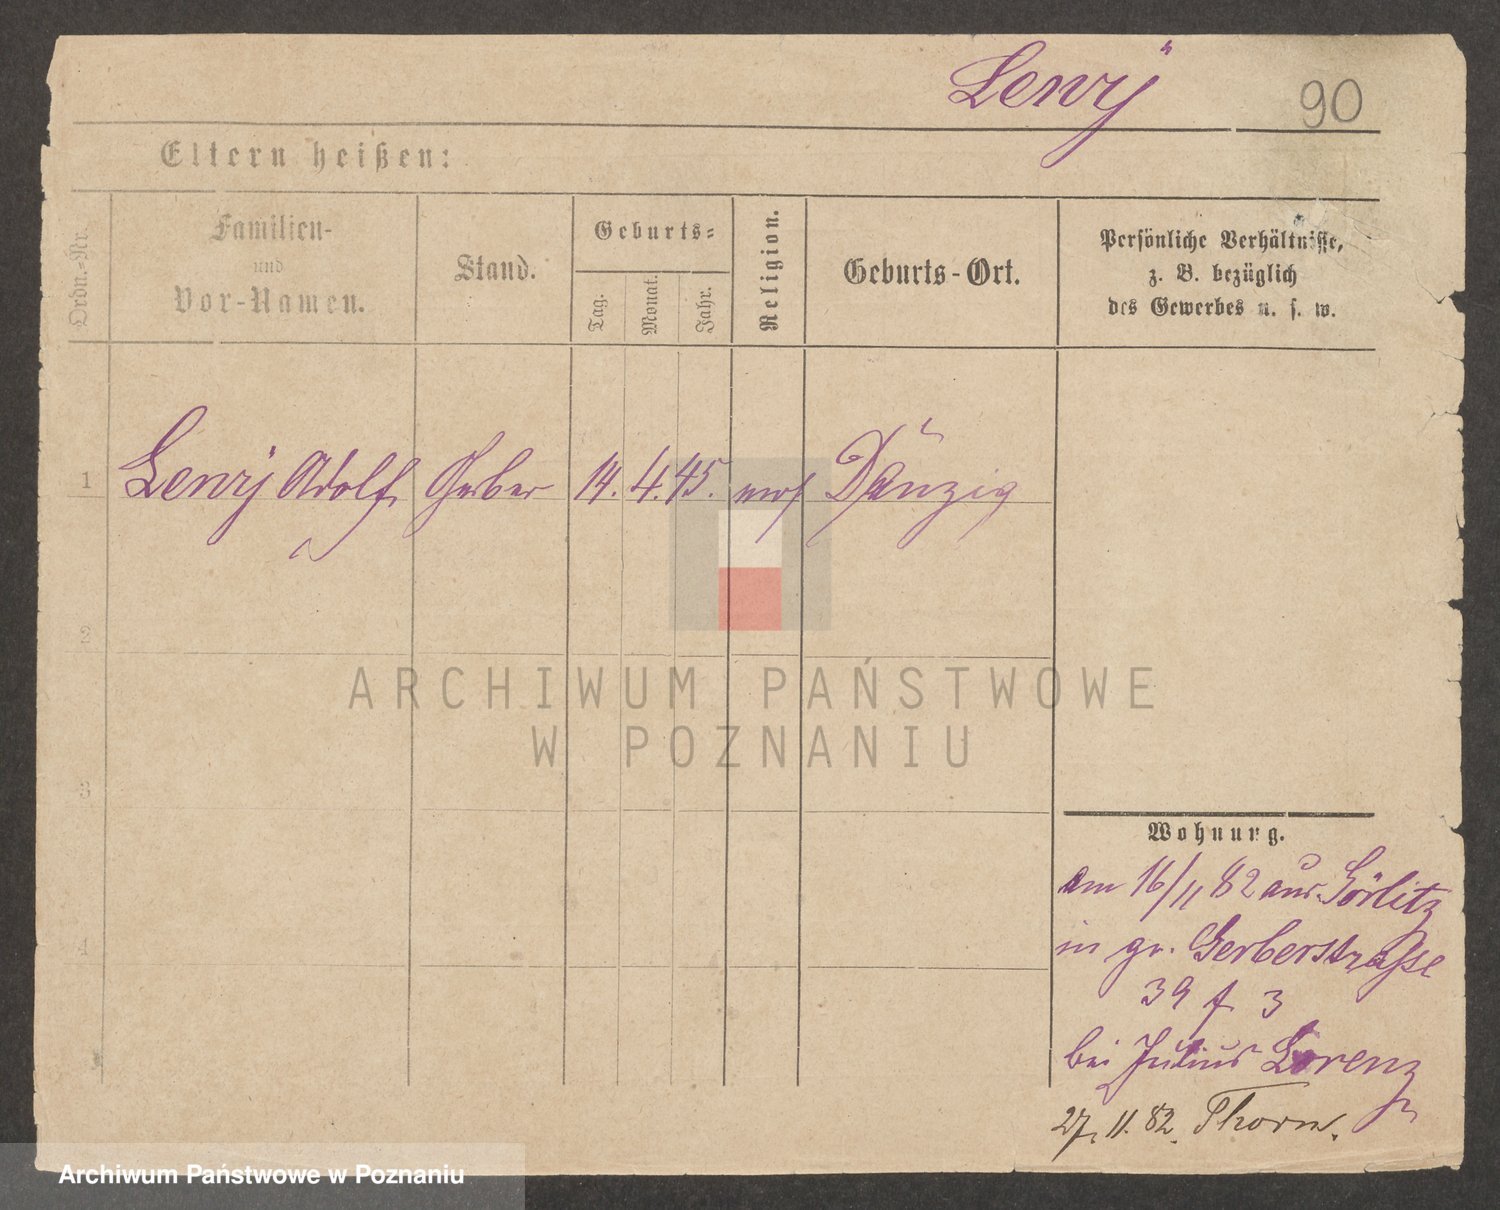 Lewÿ 90
Eltern heißen:
Ordn.-Nr.
Familien-
und
Vor-Namen.
Stand.
Geburts-
Tag.
Monat.
Jahr.
Religion.
Geburts-Ort.
Persönliche Verhältnisse,
z. B. bezüglich
des Gewerbes u. s. w.
1 Lewÿ Adolf Gerber 14. 4. 45. mos Danzig
2
3
4
ARCHIWUM PAŃSTWOWE
W POZNANIU
Wohnung.
am 16/11 82 aus Görlitz
in gr. Gerberstraße
39 f. 3
bei Julius Lorenz
27. 11. 82. Thorn.
Archiwum Państwowe w Poznaniu